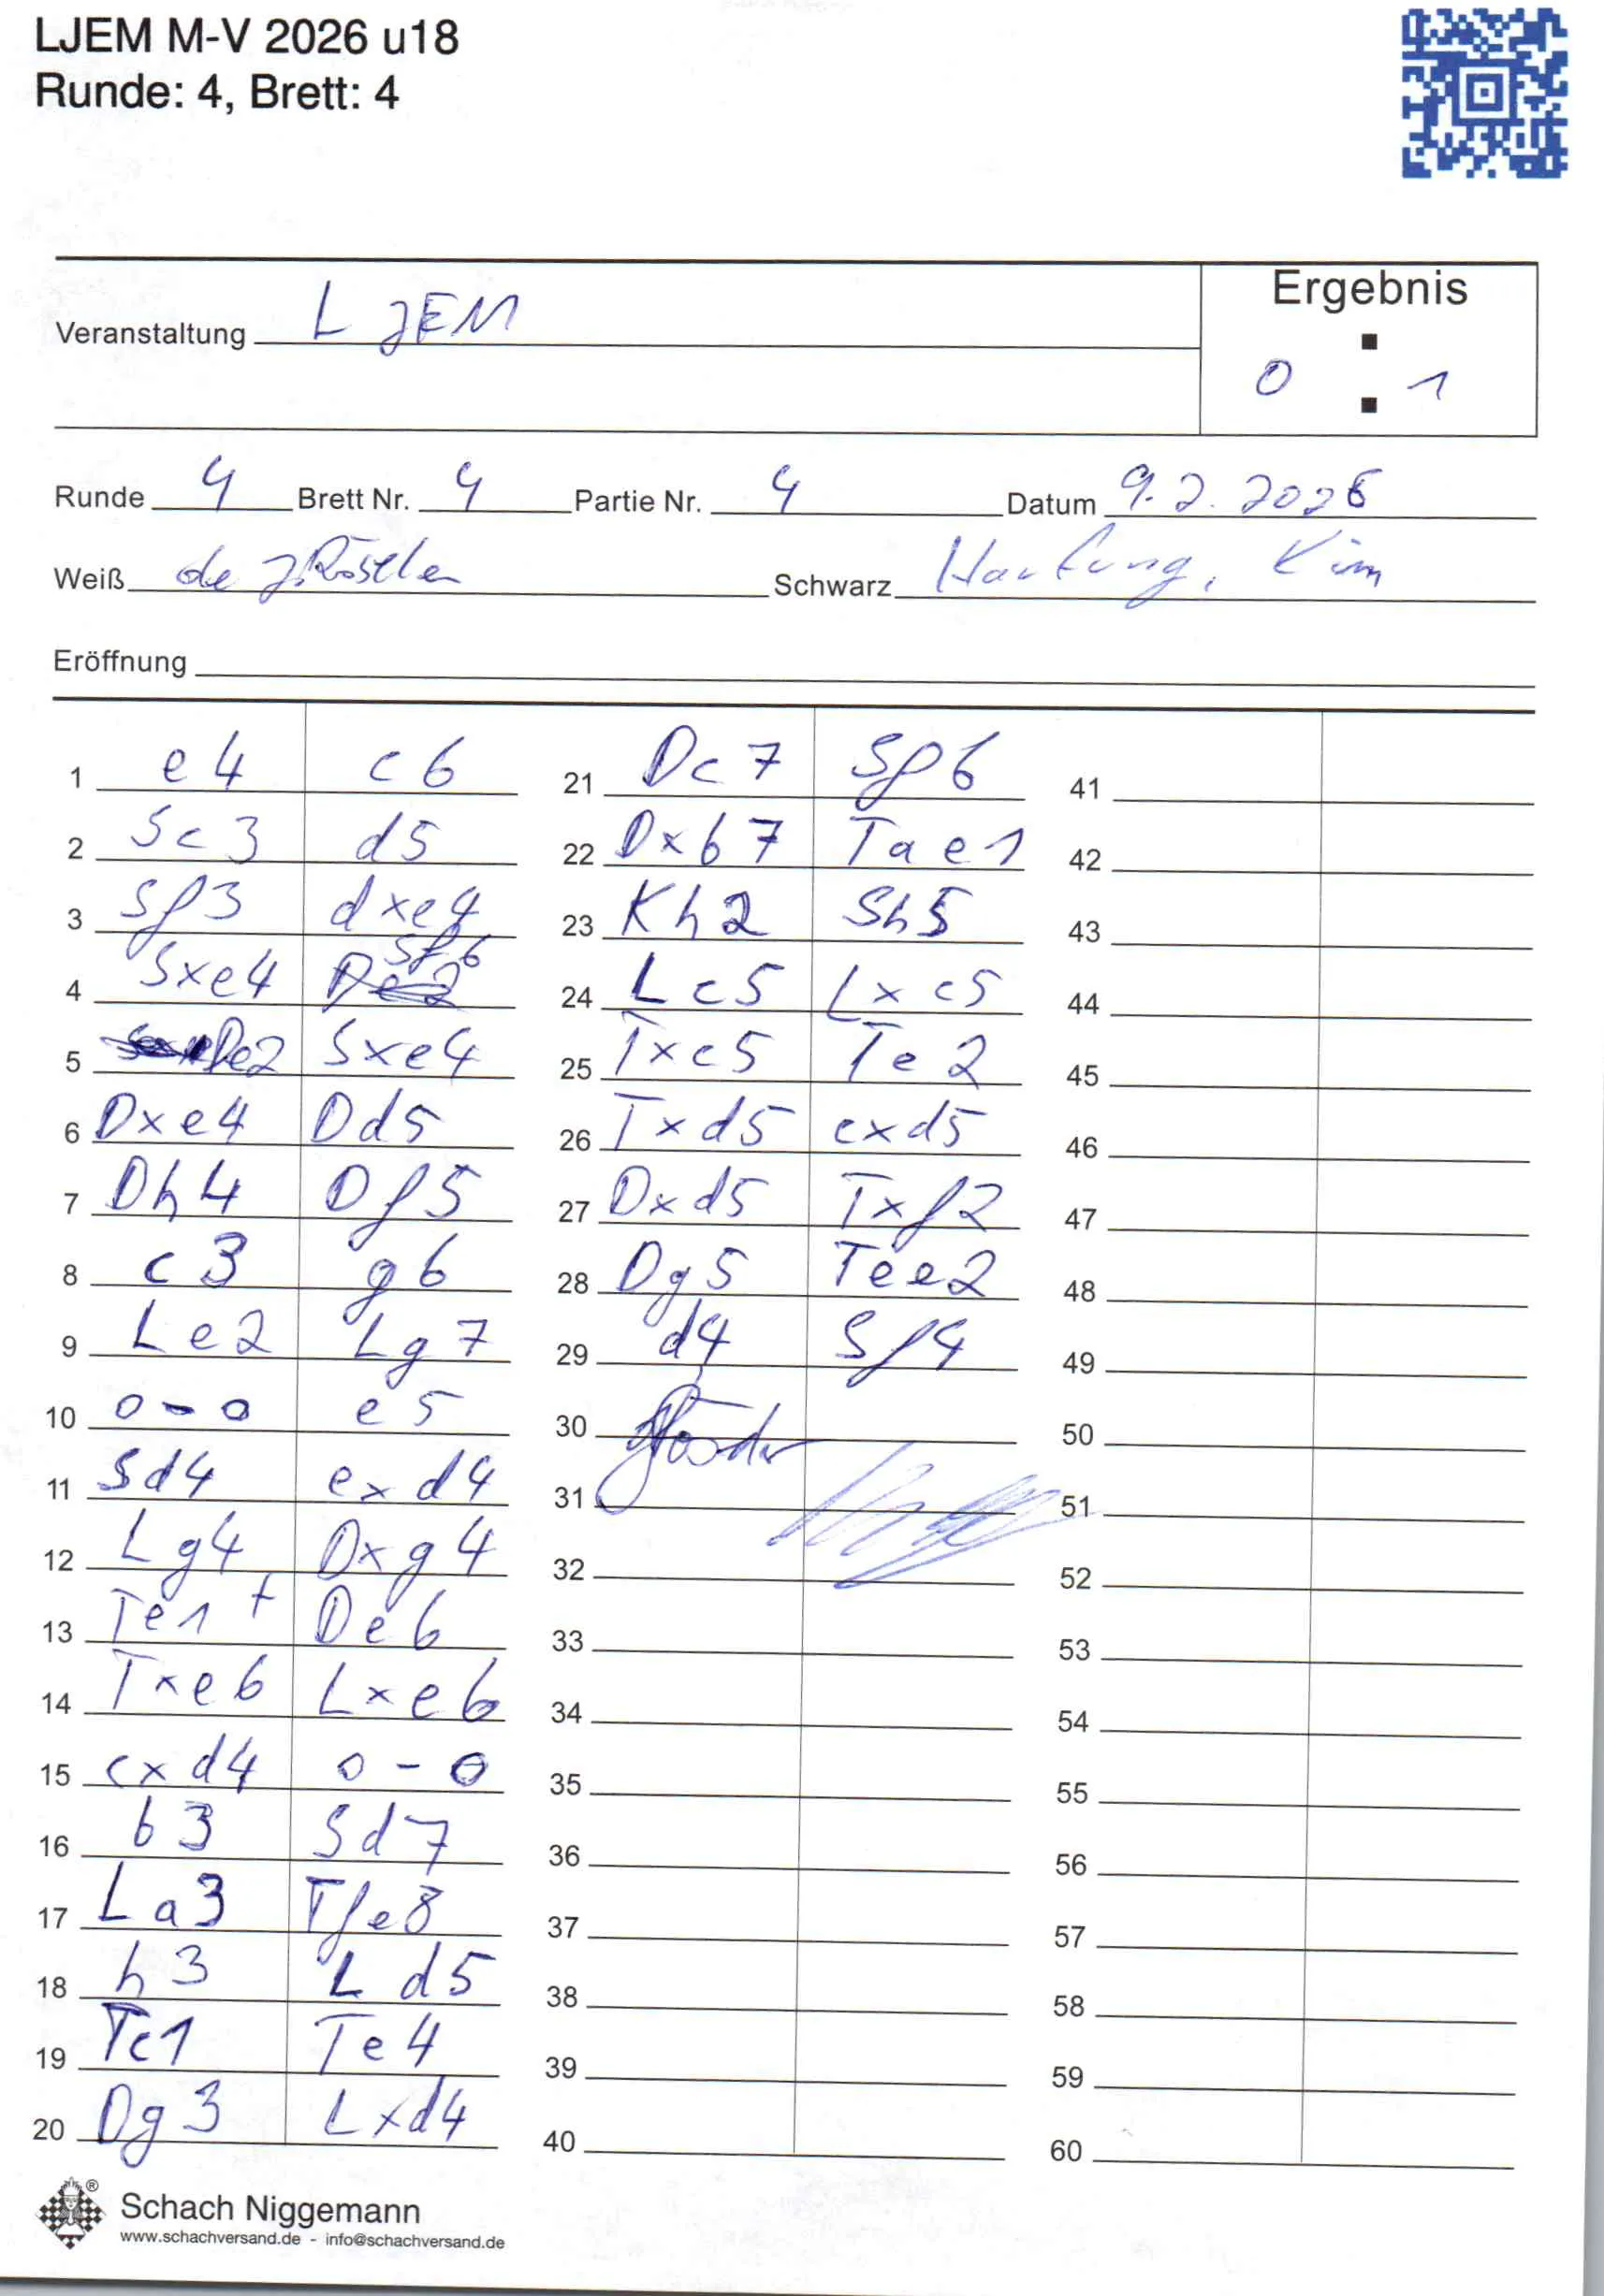 LJEM M-V 2026 u18
Runde: 4, Brett: 4
Ergebnis
Veranstaltung LJEM
0 : 1
Runde 4 Brett Nr. 4 Partie Nr. 4 Datum 9.2.2026
Weiß de Schwarz Hartung, Kim
Eröffnung
1 e4 c6
2 Sc3 d5
3 Sf3 dxe4
4 Sxe4 Sf6
5 De2 Sxe4
6 Dxe4 Dd5
7 Dh4 Df5
8 c3 g6
9 Le2 Lg7
10 0-0 e5
11 Sd4 exd4
12 Lg4 Dxg4
13 Te1+ De6
14 Txe6 Lxe6
15 cxd4 0-0
16 b3 Sd7
17 La3 Tfe8
18 h3 Ld5
19 Tc1 Te4
20 Dg3 Lxd4
21 Dc7 Sf6
22 Dxb7 Tae1
23 Kh2 Sh5
24 Lc5 Lxc5
25 Txc5 Te2
26 Txd5 cxd5
27 Dxd5 Txf2
28 Dg5 Tee2
29 d4 Sf4
30
31
32
33
34
35
36
37
38
39
40
41
42
43
44
45
46
47
48
49
50
51
52
53
54
55
56
57
58
59
60
®
Schach Niggemann
www.schachversand.de - info@schachversand.de